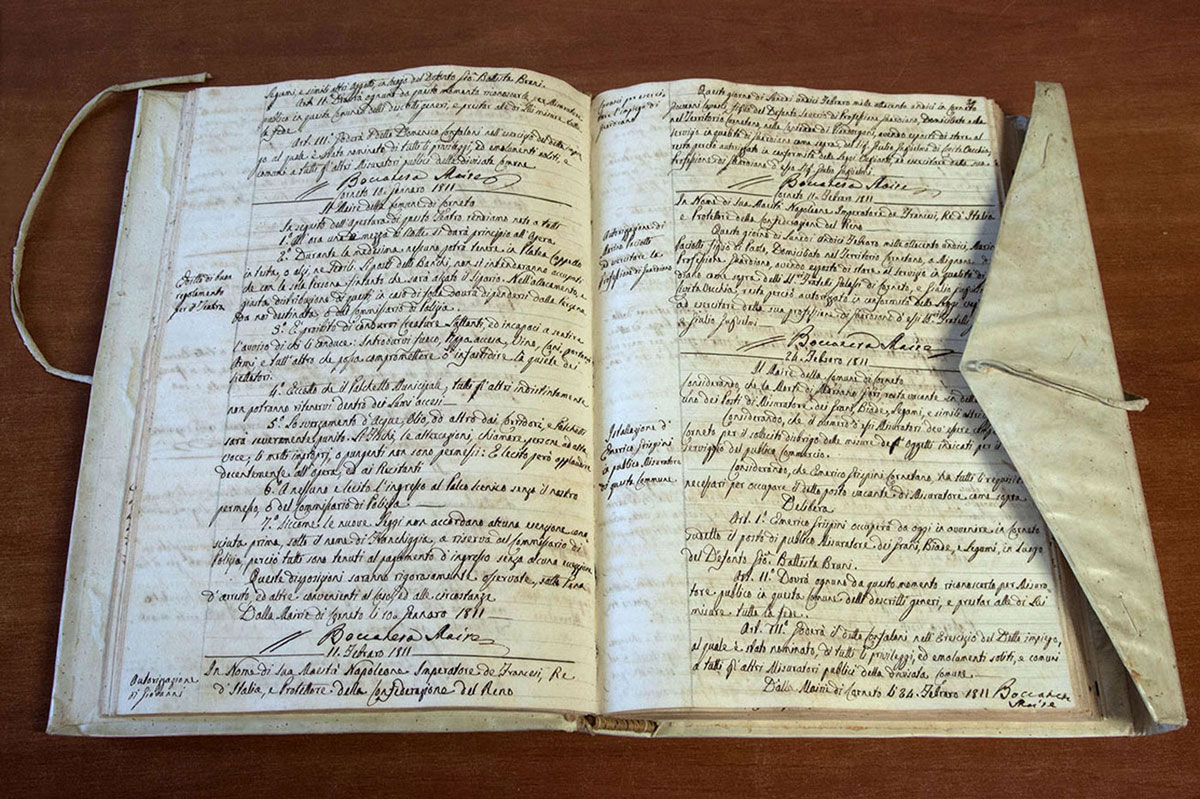 Legami, e simili altri oggetti, in luogo del Defonto Gio. Battista Bruni.
Art. II. Dovrà ognuno da questo momento riconoscerlo per Misuratore
publico in questa Comune delli descritti generi, e prestar alle di Lui misure, tutta
la fede.
Art. III.° Goderà il detto Domenico Consalani nell'esercizio del detto impie
go al quale è stato nominato di tutti li privileggi, ed emolumenti soliti, e
comuni a tutti gl'altri Misuratori publici della divisata Comune
Boccanera Maire
Corneto 10. Gennaro 1811
Il Maire della Comune di Corneto
In seguito dell'apertura di questo Teatro rendiamo noto a tutti
1.° All'ora una e mezzo di Notte si darà principio all'Opera
2.° Durante la medesima nessuno potrà tenere in Platea Cappello
in testa, o
che con la sola persona, fintanto che sarà alzato il Sipario. Nell'allocamento, e
giusta distribuzione di questi, in caso di folla dovrà dipendersi dalla persona,
da noi destinata, o dal Commissario di Polizia.
Editto di buon
regolamento
per il Teatro
3.° È proibito di condurvi Creature Lattanti, ed incapaci a sentire
l'avviso di chi le conduce: Introdurvi fuoco, Pippa accesa, Vino, Cani, portarvi
Armi e tutt'altro che possa compromettere, o infastidire la quiete dei
Spettatori.
4.° Eccetto che il Palchetto Municipale, tutti gl'altri indistintamente
non potranno ritenervi dentro dei Lumi accesi
5.° Lo svuotamento d'Acque, Olio, od altro dai Corridori, e Palchetti
sarà severamente punito. Li Fischi, le altercazioni, chiamare persone ad alta
voce, li motti improprj, o pungenti non sono permessi: È lecito però applaudire
decentemente all'Opera, ed ai Recitanti
6. A nessuno è lecito l'ingresso al Palco scenico senza il nostro
permesso, o del Commissario di Polizia
7.° Siccome le nuove Leggi non accordano alcuna esenzione cono
sciuta prima, sotto il nome di Franchiggia, a riserva del Commissario di
Polizia, perciò tutti sono tenuti al pagamento d'ingresso senza alcuna eccezione
Queste disposizioni saranno rigorosamente osservate, sotto Pena
d'arresto ed altre convenienti al Caso, ed alle circostanze
Dalla Mairie di Corneto li 10. Gennaro 1811
Boccanera Maire
11. Febraro 1811
In Nome di Sua Maestà Napoleone Imperatore de Francesi, Re
d'Italia, e Protettore della Confederazione del Reno
Autorizazione
di Giovanni
per eserci
l'impiego di
Guardiano
Questo giorno di Lunedì undici Febraro mille ottocento undici in Corneto
Giovanni figlio del Defonto Saverio di Professione Guardiano Domiciliato
nel Territorio Cornetano, nella avendo esposto di stare al
servizio in qualità di Guardiano come sopra del Sig. Giulio Guglielmi di Civita Vecchia,
resta perciò autorizzato in conformità delle Leggi veglianti ad esercitare della sua
professione di Guardiano d'esso Sig. Giulio Guglielmi.
Boccanera Maire
Corneto 11. Febraro 1811
In Nome di Sua Maestà Napoleone Imperatore de Francesi, Re d'Italia
e Protettore della Confederazione del Reno
Autorizazione di
Marino Paciotti
ad esercitare la
Professione di Guardiano
Questo giorno di Lunedì undici Febraro mille ottocento undici, Marino
Paciotti figlio di Paolo, Domiciliato nel Territorio Cornetano, a di
Professione Guardiano, avendo esposto di stare al servizio in qualità di
diano come sopra delli SS.i Fratelli Falzacappa di Corneto, e Giulio Guglielmi
Civita Vecchia, resta perciò autorizzato in conformità delle Leggi
ad esercitare della sua professione di Guardiano d'essi SS.i Fratelli
e Giulio Guglielmi
Boccanera Maire
24. Febraro 1811
Il Maire della Comune di Corneto
Considerando, che la Morte di Mariano resta vacante in
uno dei Posti di Misuratore dei Grani, Biade, Legami, e simili altri
Considerando, che il numero d'essi Misuratori dev'essere
Corneto per il sollecito disbrigo delle misure de gl'oggetti indicati per il
servigio del publico Commercio.
Istallazione d'
Emerico Grispini
in publico Misuratore
di questa Comune
Considerando, che Emerico Grispini Cornetano, ha tutti li requisiti
necessarj per occupare il detto posto vacante di Misuratore come sopra
Delibera
Art. 1.° Emerico Grispini occuperà da oggi in avvenire in Corneto
sudetto il posto di publico Misuratore dei Grani, Biade, e Legami, in luogo
del Defonto Gio. Battista Bruni.
Art. II.° Dovrà ognuno da questo momento riconoscerlo per Misura
tore publico in questa Comune delli descritti generi, e prestar alle di Lui
misure tutta la fede.
Art. III.° Goderà il detto Consalani nell'Esercizio del Detto impiego,
al quale è stato nominato di tutti li privileggi, ed emolumenti soliti, e comuni
a tutti gl'altri Misuratori publici della divisata Comune
Dalla Mairie di Corneto li 24. Febraro 1811 Boccanera
Maire